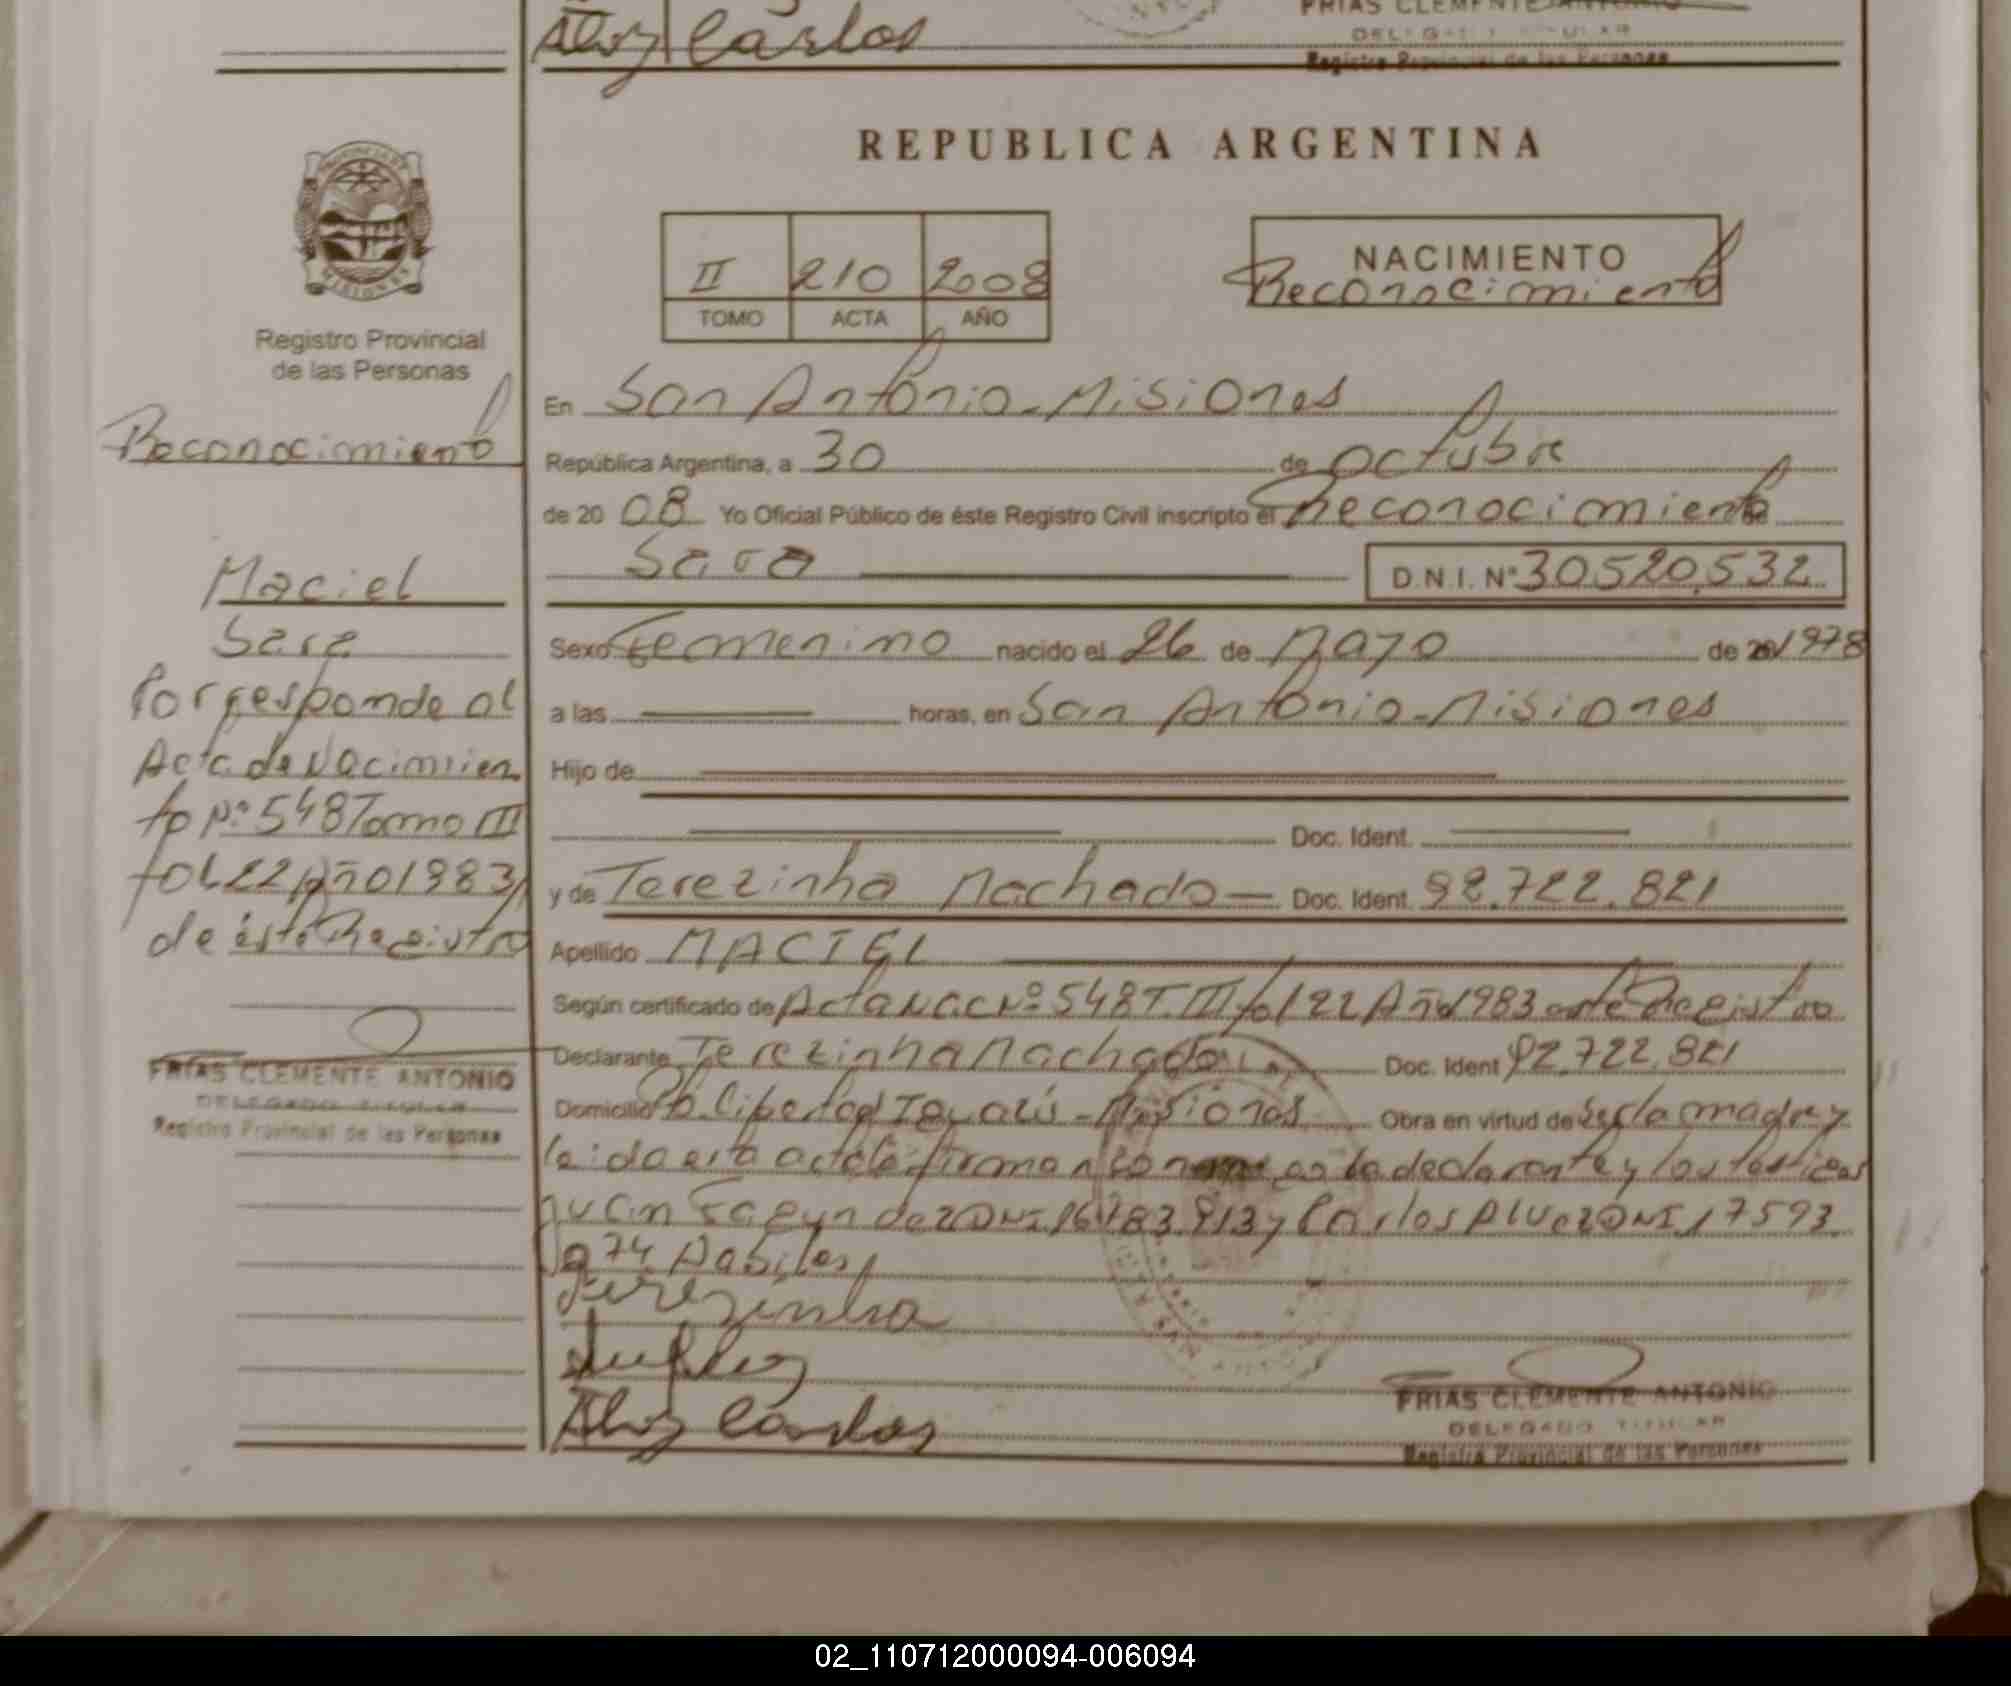 Alvez Carlos
FRIAS CLEMENTE ANTONIO
DELEGADO TITULAR
Registro Provincial de las Personas
REPUBLICA ARGENTINA
PROVINCIA DE
MISIONES
Registro Provincial
de las Personas
II 210 2008
TOMO ACTA AÑO
NACIMIENTO
Reconocimiento
Reconocimiento
Maciel
Sara
Corresponde al
Acta de Nacimien
to Nº 548 Tomo III
fol 22 Año 1983
de éste Registro
FRIAS CLEMENTE ANTONIO
DELEGADO TITULAR
Registro Provincial de las Personas
En San Antonio - Misiones
República Argentina, a 30 de octubre
de 20 08 Yo Oficial Público de éste Registro Civil inscripto el Reconocimiento de
Sara D.N.I. Nº 30520.532
Sexo Femenino nacido el 26 de Mayo de 20 1978
a las horas, en San Antonio - Misiones
Hijo de
Doc. Ident.
y de Terezinha Machado Doc. Ident. 92.722.821
Apellido MACIEL
Según certificado de Acta Nac Nº 548 T. III fol 22 Año 1983 este Registro
Declarante Terezinha Machado Doc. Ident 92.722.821
Domicilio Pto. Libertad Iguazú - Misiones Obra en virtud de Ser la madre y
leida esta acta la firman la declarante y los testigos
Juan DNI 16783.913 y Carlos Alvez DNI 17593
974 Habiles
Terezinha
Alvez Carlos
FRIAS CLEMENTE ANTONIO
DELEGADO TITULAR
Registro Provincial de las Personas
02_110712000094-006094